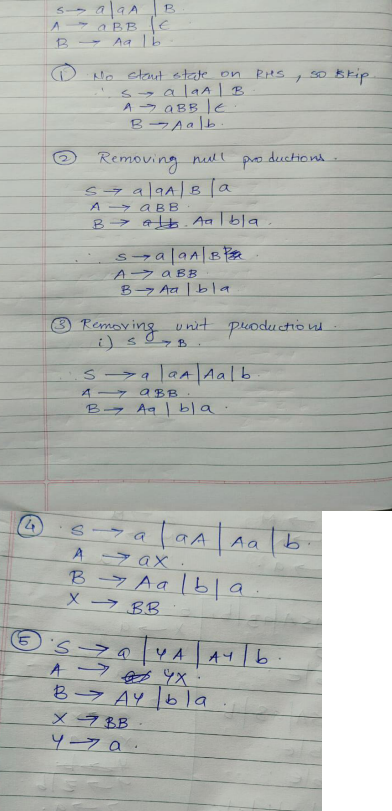 S → a | aA | B
A → aBB | ε
B → Aa | b
① No start state on RHS, so skip
∴ S → a | aA | B
A → aBB | ε.
B → Aa | b.
② Removing null productions.
S → a | aA | B | a
A → aBB.
B → Aa | b | a.
∴ S → a | aA | B
A → aBB
B → Aa | b | a
③ Removing unit productions.
i) S → B.
S → a | aA | Aa | b
A → aBB.
B → Aa | b | a.
④ S → a | aA | Aa | b.
A → aX.
B → Aa | b | a.
X → BB.
⑤ S → a | YA | AY | b.
A → YX.
B → AY | b | a
X → BB.
Y → a.